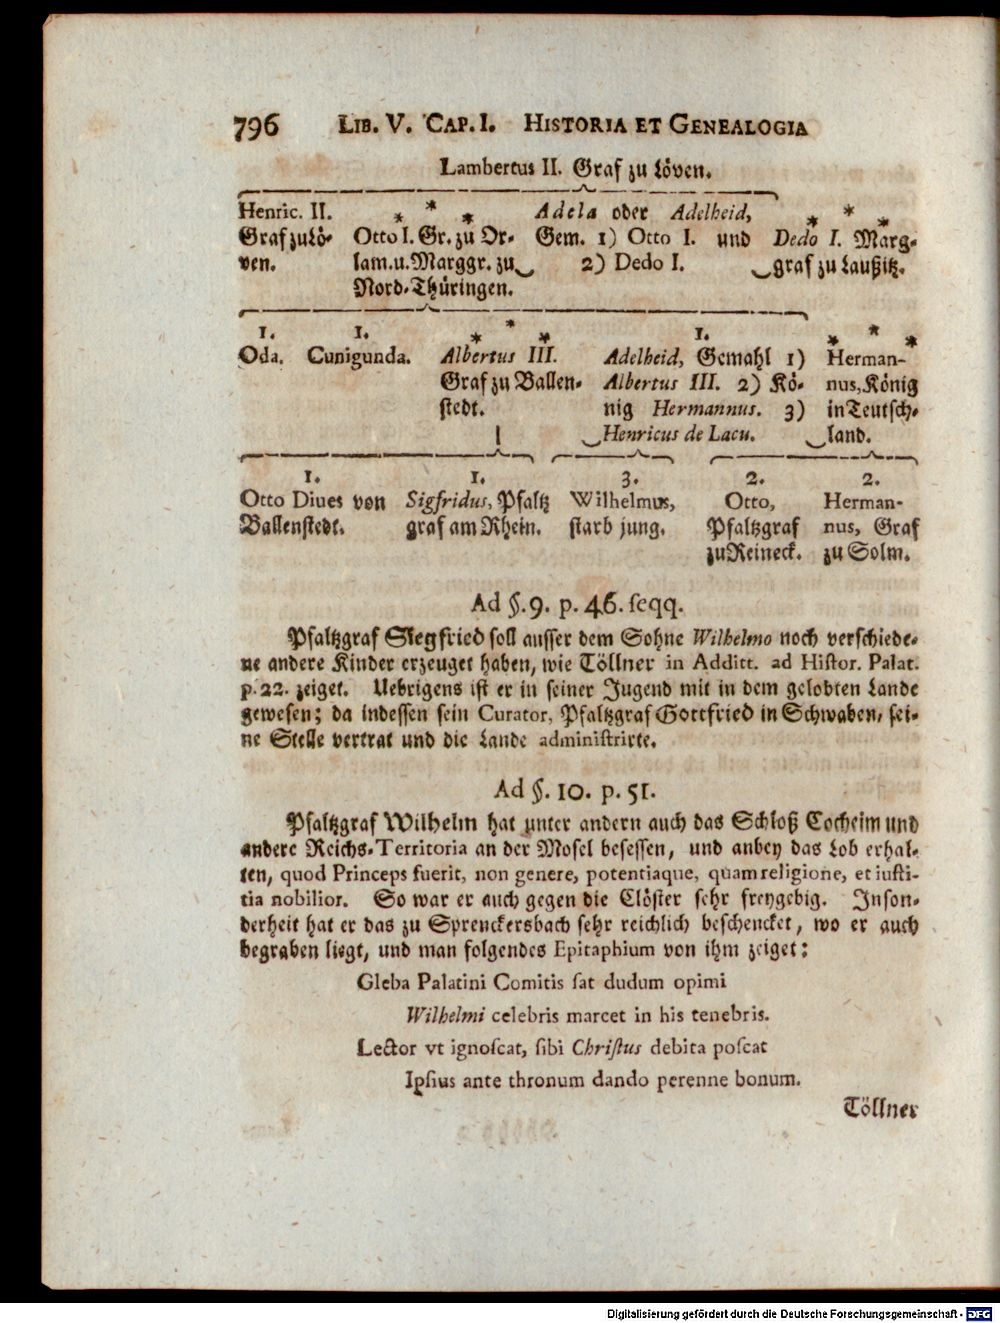 796 LIB. V. CAP. I. HISTORIA ET GENEALOGIA
Lambertus II. Graf zu Löven.
Henric. II. * * * Adela oder Adelheid, * * *
Graf zu Lö- Otto I. Gr. zu Or- Gem. 1) Otto I. und Dedo I. Marg-
ven. lam. u. Marggr. zu 2) Dedo I. graf zu Laußitz.
Nord-Thüringen.
1. 1. * * * 1. * * *
Oda. Cunigunda. Albertus III. Adelheid, Gemahl 1) Herman-
Graf zu Ballen- Albertus III. 2) Kö- nus, König
stedt. nig Hermannus. 3) in Teutsch-
Henricus de Lacu. land.
1. 1. 3. 2. 2.
Otto Diues von Sigfridus, Pfaltz Wilhelmus, Otto, Herman-
Ballenstedt. graf am Rhein. starb jung. Pfaltzgraf nus, Graf
zu Reineck. zu Solm.
Ad §. 9. p. 46. seqq.
Pfaltzgraf Siegfried soll ausser dem Sohne Wilhelmo noch verschiede-
ne andere Kinder erzeuget haben, wie Töllner in Additt. ad Histor. Palat.
p. 22. zeiget. Uebrigens ist er in seiner Jugend mit in dem gelobten Lande
gewesen; da indessen sein Curator, Pfaltzgraf Gottfried in Schwaben, sei-
ne Stelle vertrat und die Lande administrirte.
Ad §. 10. p. 51.
Pfaltzgraf Wilhelm hat unter andern auch das Schloß Cocheim und
andere Reichs-Territoria an der Mosel besessen, und anbey das Lob erhal-
ten, quod Princeps fuerit, non genere, potentiaque, quam religione, et iusti-
tia nobilior. So war er auch gegen die Clöster sehr freygebig. Inson-
derheit hat er das zu Sprenckersbach sehr reichlich beschencket, wo er auch
begraben liegt, und man folgendes Epitaphium von ihm zeiget:
Gleba Palatini Comitis sat dudum opimi
Wilhelmi celebris marcet in his tenebris.
Lector vt ignoscat, sibi Christus debita poscat
Ipsius ante thronum dando perenne bonum.
Töllner
Digitalisierung gefördert durch die Deutsche Forschungsgemeinschaft - DFG